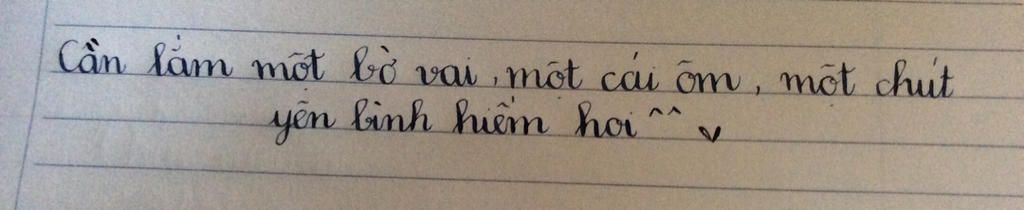 Cần lắm một bờ vai, một cái ôm, một chút
yên bình hiếm hoi ^^